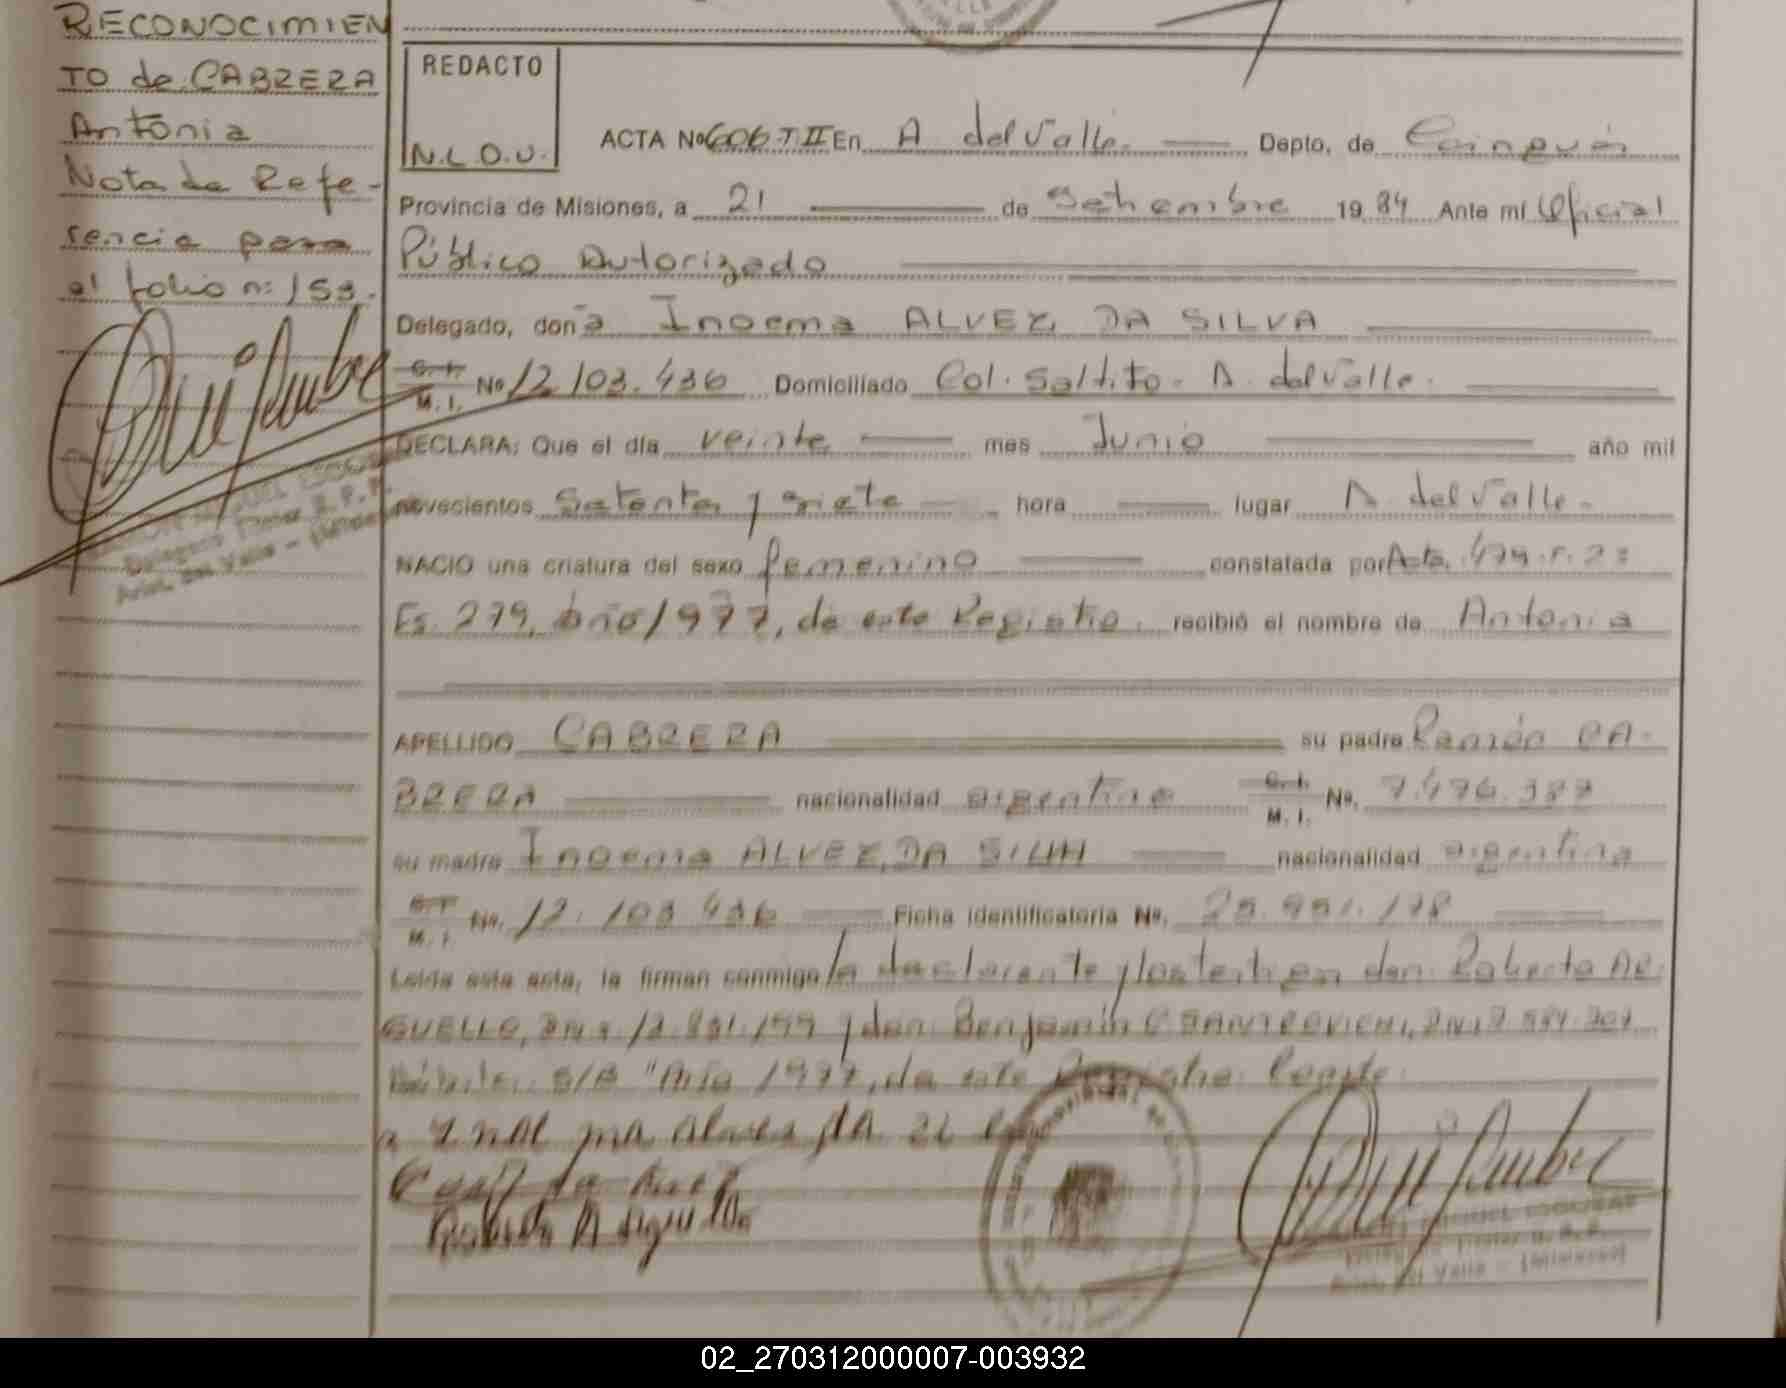 RECONOCIMIEN
TO de CABRERA
Antonia
Nota de Refe-
rencia para
el folio nº 153.
REDACTO
N.L.O.U.
ACTA Nº 606 T II En A del Valle. Depto. de Cainguás
Provincia de Misiones, a 21 de Setiembre 19 84 Ante mí Oficial
Público Autorizado
Delegado, doña Inoema ALVEZ DA SILVA
C. I. M. I. Nº 12.103.436 Domiciliado Col. Saltito - A. del Valle.
DECLARA: Que el día veinte mes Junio año mil
novecientos Setenta y siete hora lugar A del Valle.
NACIO una criatura del sexo femenino constatada por Acta. 479. T. 2º
Fs. 279, año 1977, de este Registro. recibió el nombre de Antonia
APELLIDO CABRERA su padre Ramón CA-
BRERA nacionalidad argentino C. I. M. I. Nº. 7.476.387
su madre Inoema ALVEZ, DA SILVA nacionalidad argentina
C. I. M. I. Nº. 12.103.436 Ficha identificatoria Nº. 25.951.178
Leída esta acta, la firman conmigo la declarante y los testigos don Roberto AR
GUELLO, y don Benjamín C
"Año 1977, de este Registro. Conste.
Roberto Arguello
MIGUEL
Delegado Titular R. P.
Arist. del Valle - (Misiones)
MIGUEL ESCOBAR
Titular R. P.
Arist. del Valle - (Misiones)
02_270312000007-003932